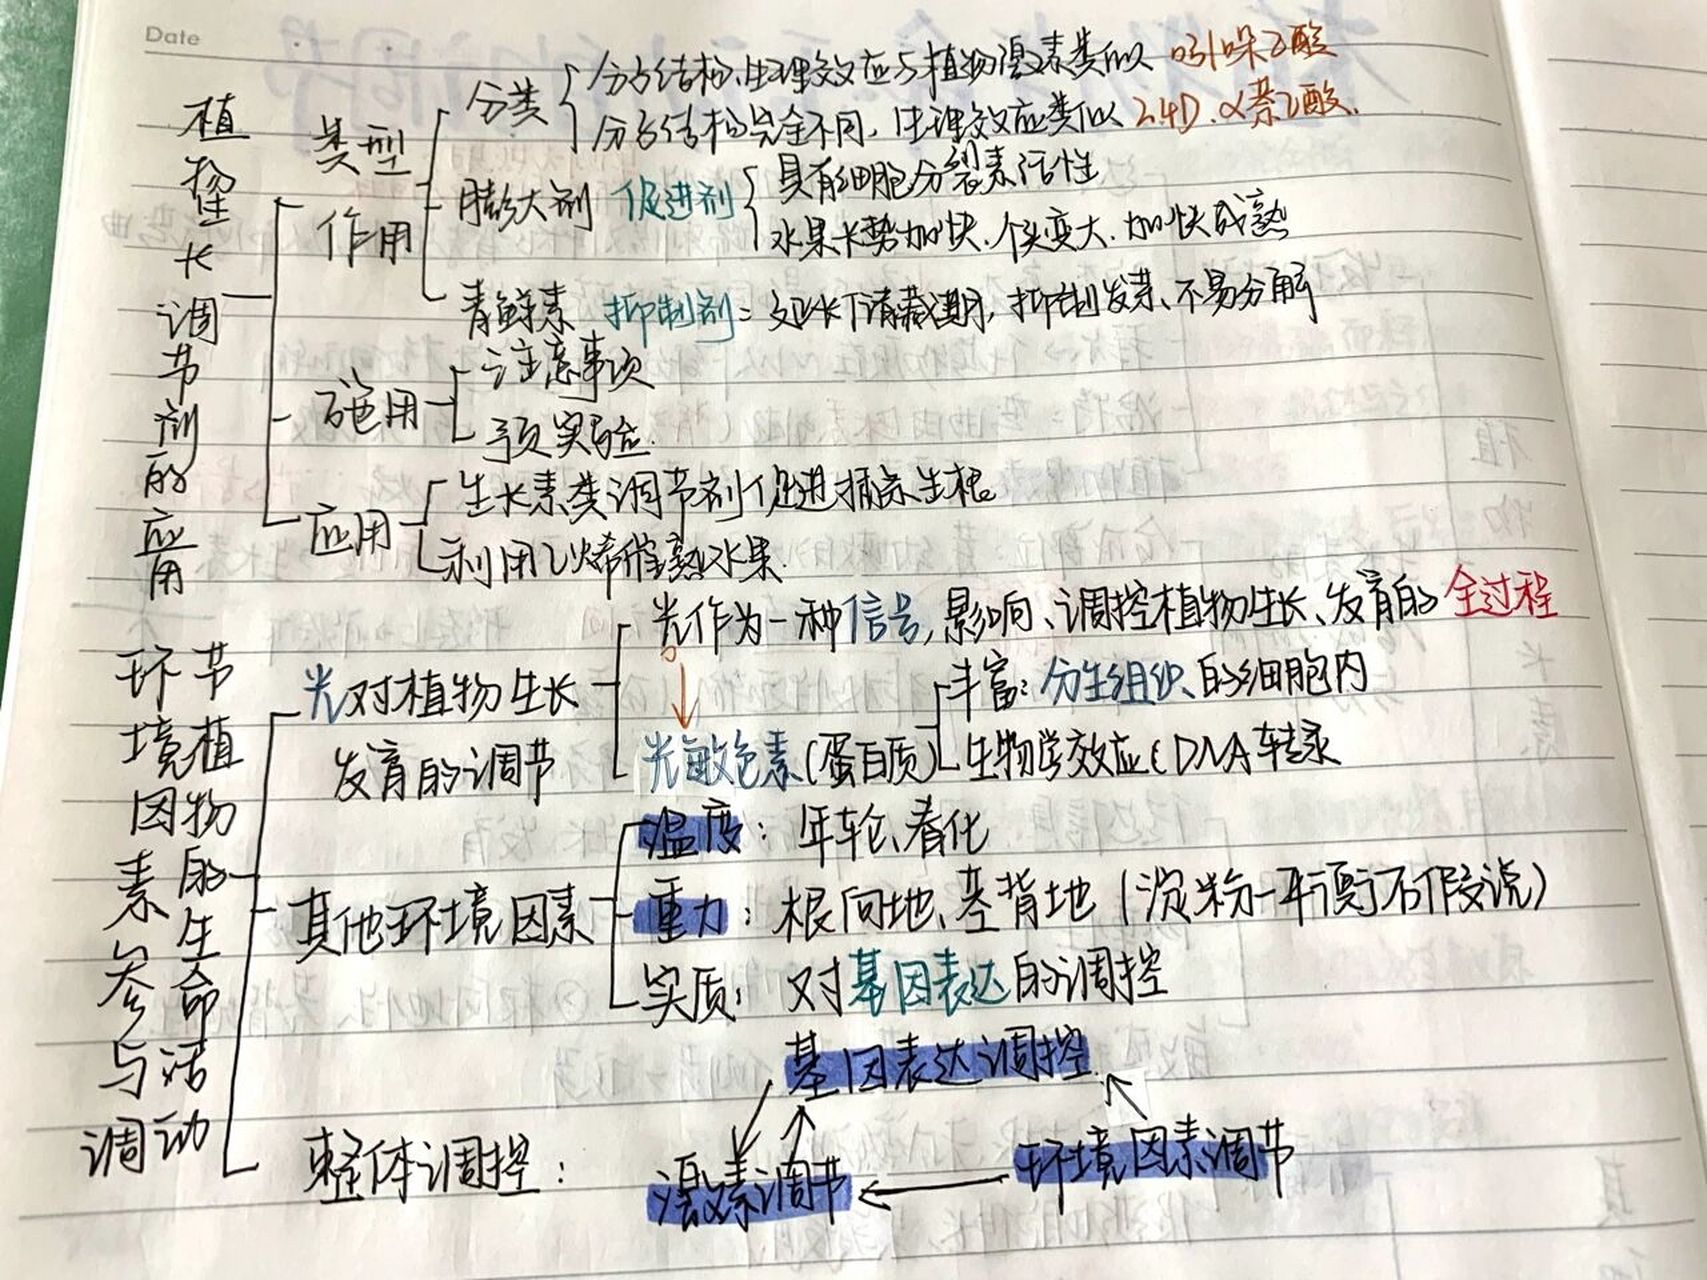 Date
植物生长调节剂的应用
类型
作用
分类
分子结构、生理效应与植物激素类似 吲哚乙酸
分子结构完全不同，生理效应类似 2.4D.α萘乙酸.
膨大剂 促进剂
具有细胞分裂素活性
水果长势加快.个头变大.加快成熟
青鲜素 抑制剂: 延长下请藏期,抑制发芽、不易分解
施用
注意事项
预实验.
应用
生长素类调节剂促进插条生根
利用乙烯催熟水果.
环境因素参与调
节植物的生命活动
光对植物生长
发育的调节
光作为一种信号,影响、调控植物生长、发育的全过程
光敏色素(蛋白质)
丰富:分生组织、的细胞内
生物学效应:DNA转录
其他环境因素
温度: 年轮、春化
重力: 根向地、茎背地(淀粉—平衡石假说)
实质: 对基因表达的调控
整体调控:
基因表达调控
激素调节
环境因素调节